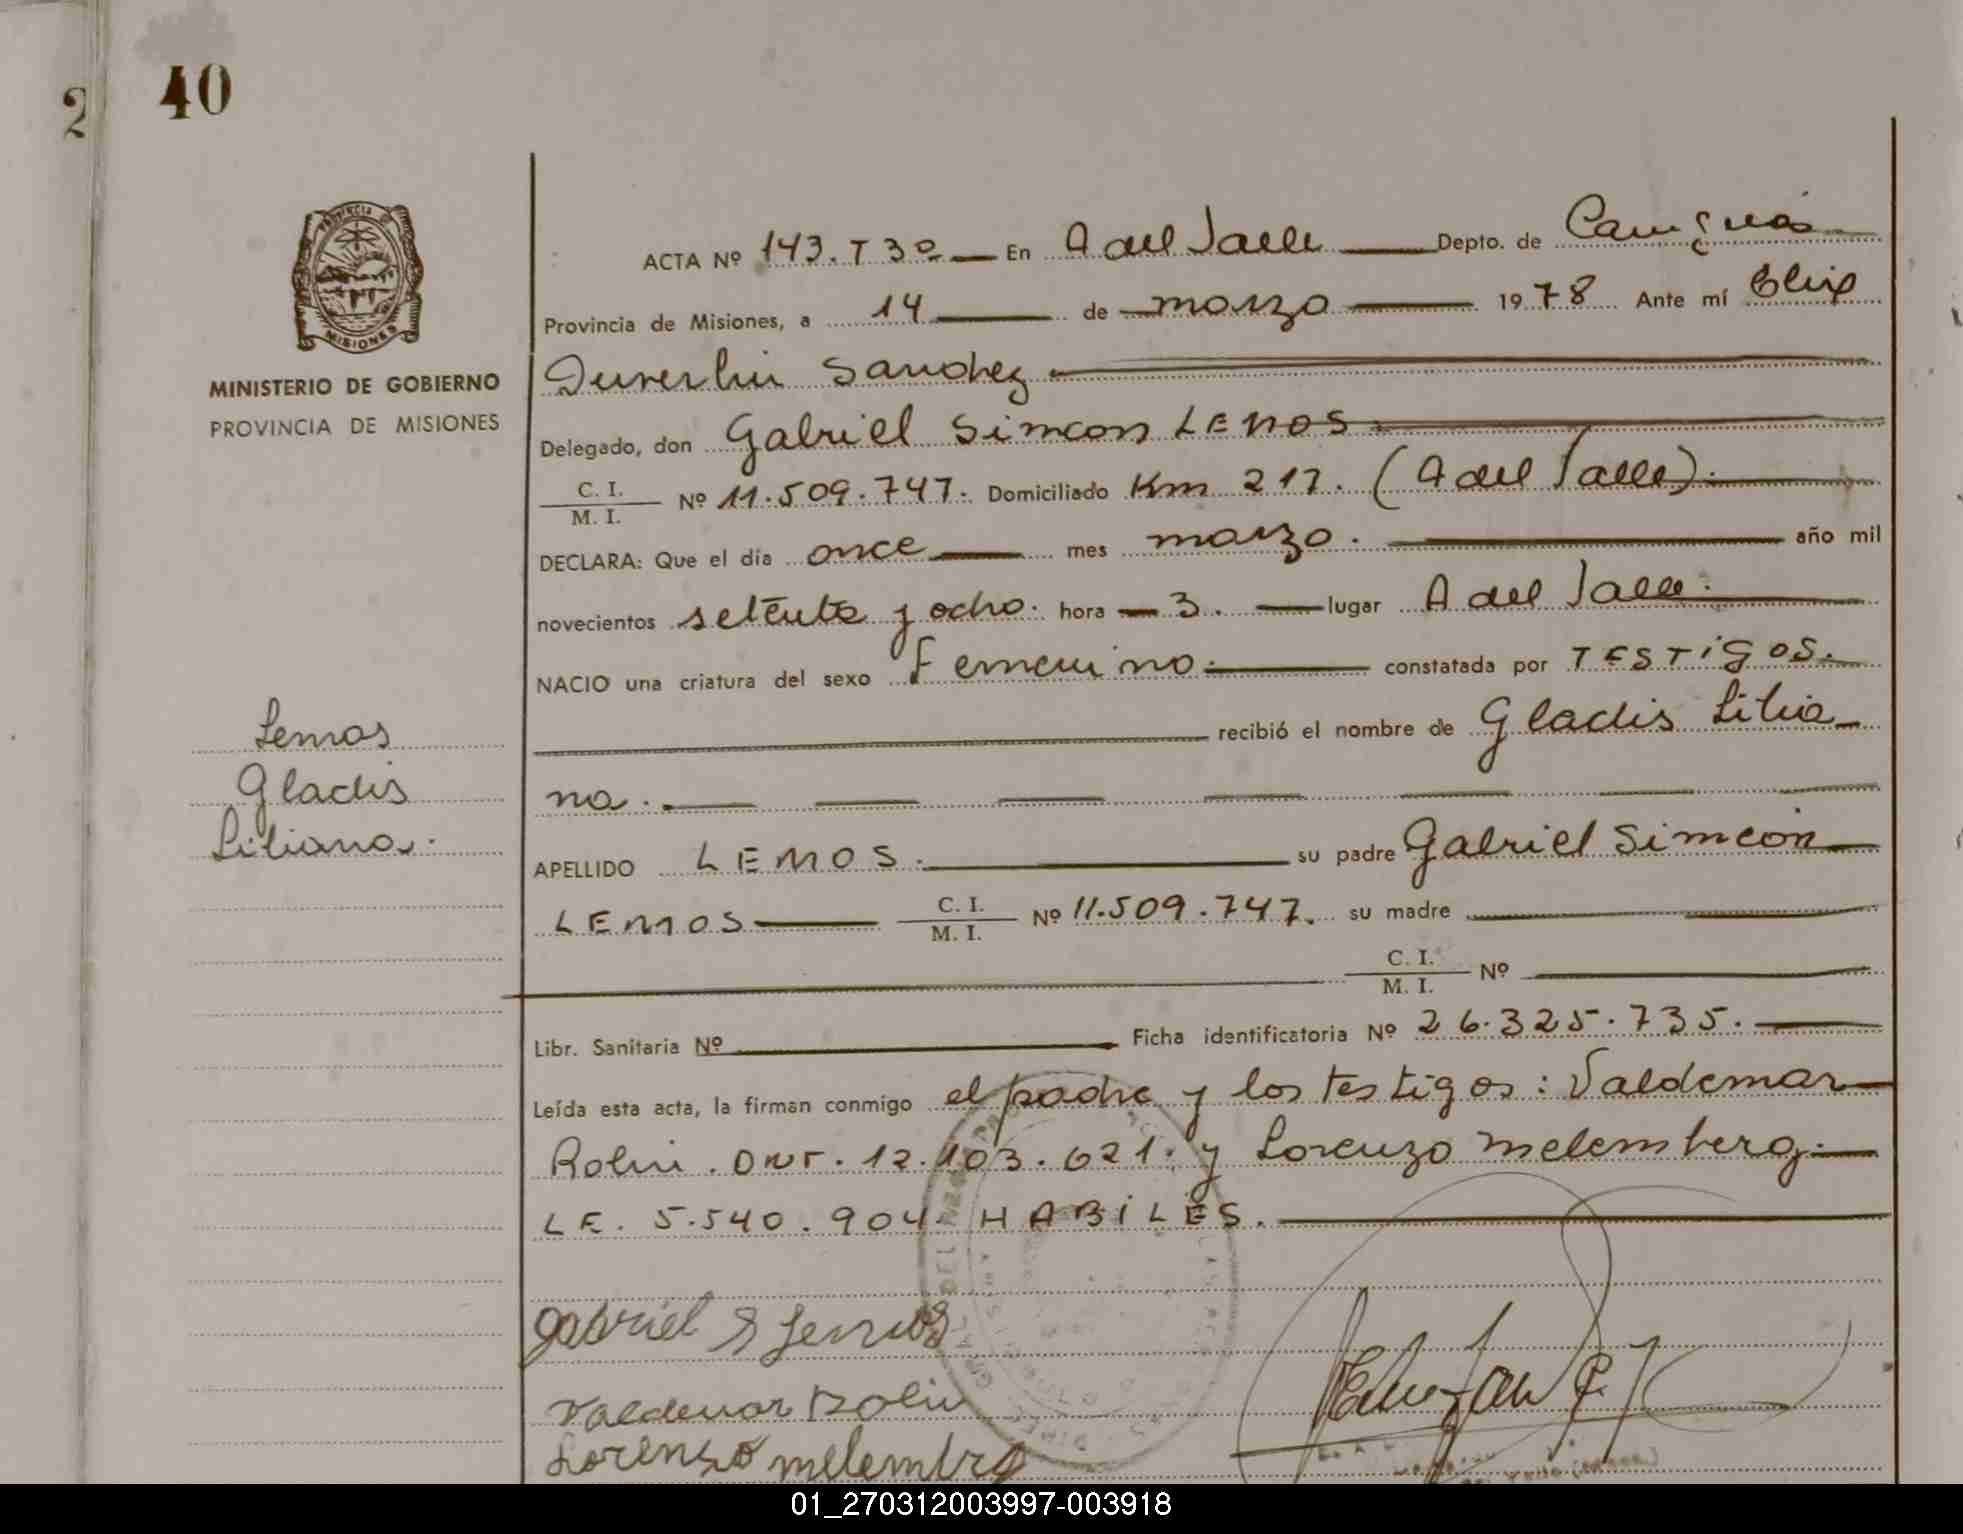 2
40
PROVINCIA
MISIONES
MINISTERIO DE GOBIERNO
PROVINCIA DE MISIONES
ACTA Nº 143. T 3º En A del Valle Depto. de Cainguás
Provincia de Misiones, a 14 de marzo 1978 Ante mí
Sanchez
Delegado, don Gabriel Simeon LEMOS
C. I.
M. I. Nº 11.509.747. Domiciliado Km 217. (A del Valle).
DECLARA: Que el día once mes marzo. año mil
novecientos setenta y ocho. hora 3. lugar A del Valle.
NACIO una criatura del sexo Femenino. constatada por TESTIGOS.
recibió el nombre de Gladis Lilia
na.
Lemos
Gladis
Liliana.
APELLIDO LEMOS. su padre Gabriel Simeón
LEMOS C. I.
M. I. Nº 11.509.747. su madre
C. I.
M. I. Nº
Libr. Sanitaria Nº Ficha identificatoria Nº 26.325.735.
Leída esta acta, la firman conmigo el padre y los testigos: Valdemar
Rolin. DNI. 12.103.621. y Lorenzo Melemberg.
LE. 5.540.904. HABILES.
Gabriel S Lemos
Valdemar Rolin
Lorenzo melembrg
01_270312003997-003918